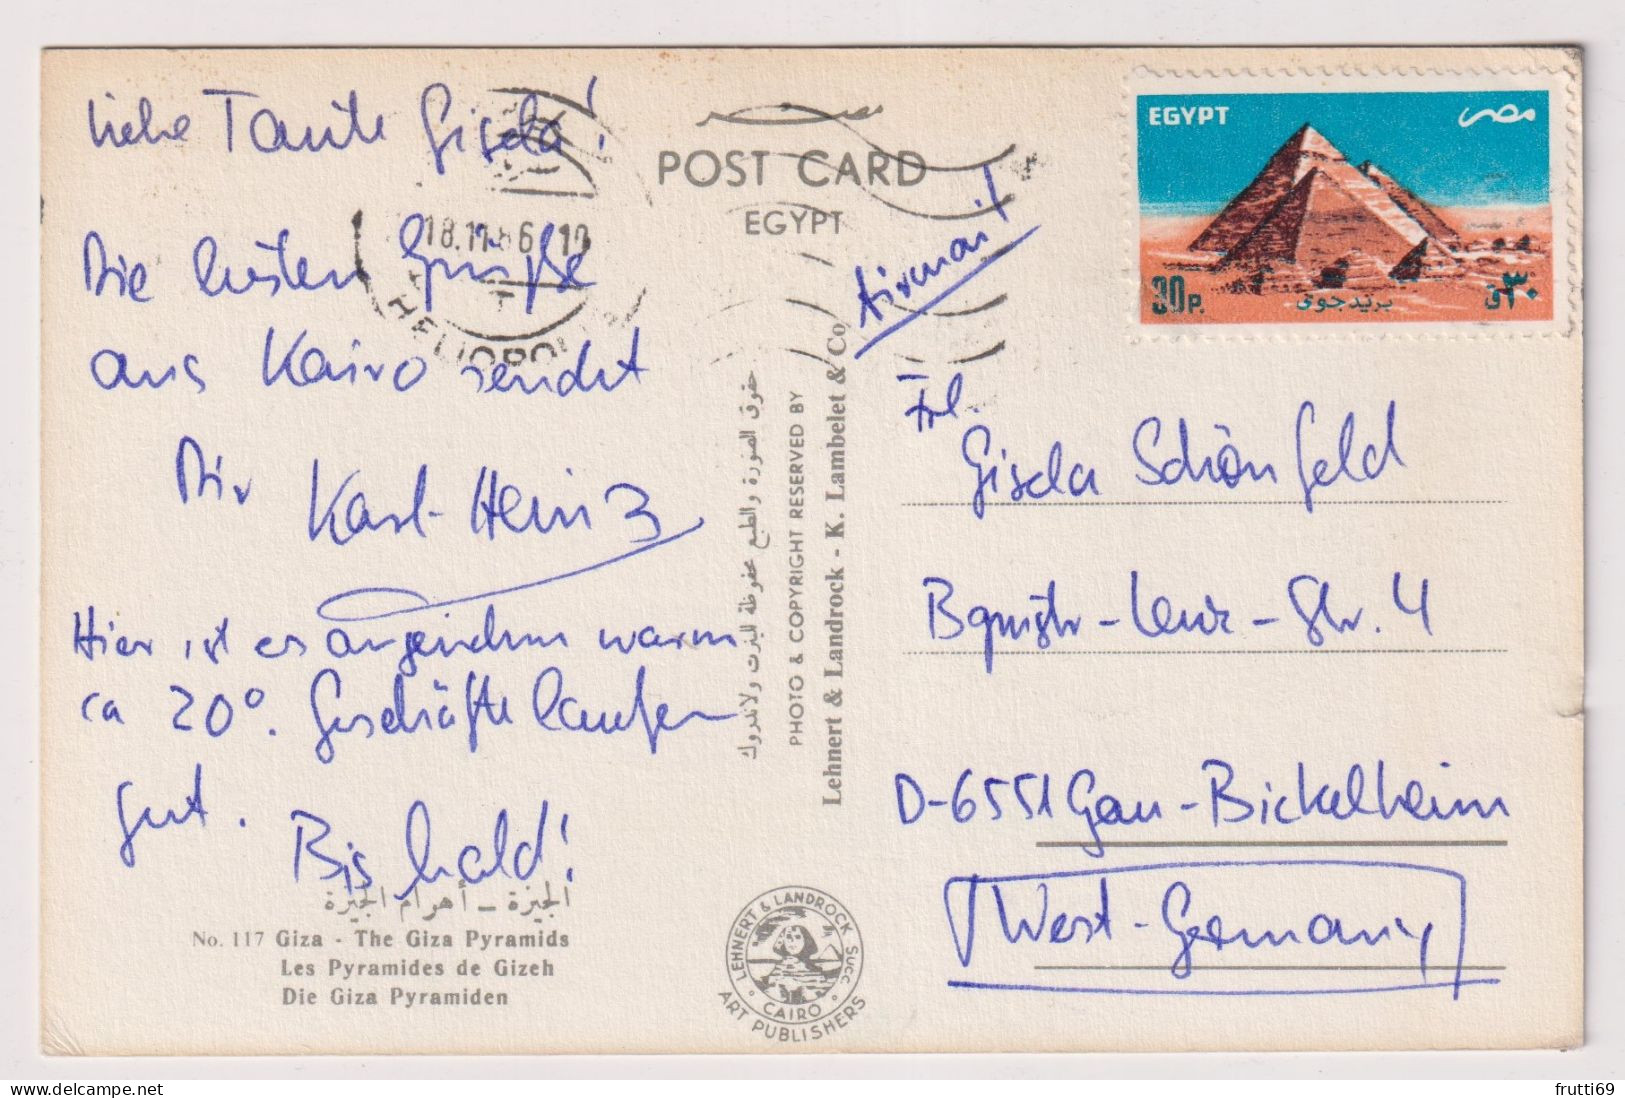 Liebe Tante Gisela!
Die besten Grüße
aus Kairo sendet
Dir Karl-Heinz
Hier ist es angenehm warm
ca 20°. Geschäfte laufen
gut.
Bis bald!
18.11.86 10
HELIOPOLIS
POST CARD
EGYPT
Airmail
EGYPT مصر
30 P. بريد جوى ٣٠ ق
Frl.
Gisela Schönfeld
Bgmstr-Lenz-Str. 4
D-6551 Gau-Bickelheim
West-Germany
حقوق الصورة والطبع محفوظة للينرت ولاندروك
PHOTO & COPYRIGHT RESERVED BY
Lehnert & Landrock - K. Lambelet & Co
الجيزة – أهرام الجيزة
No. 117 Giza - The Giza Pyramids
Les Pyramides de Gizeh
Die Giza Pyramiden
LEHNERT & LANDROCK SUCC. · CAIRO ·
ART PUBLISHERS
frutti69